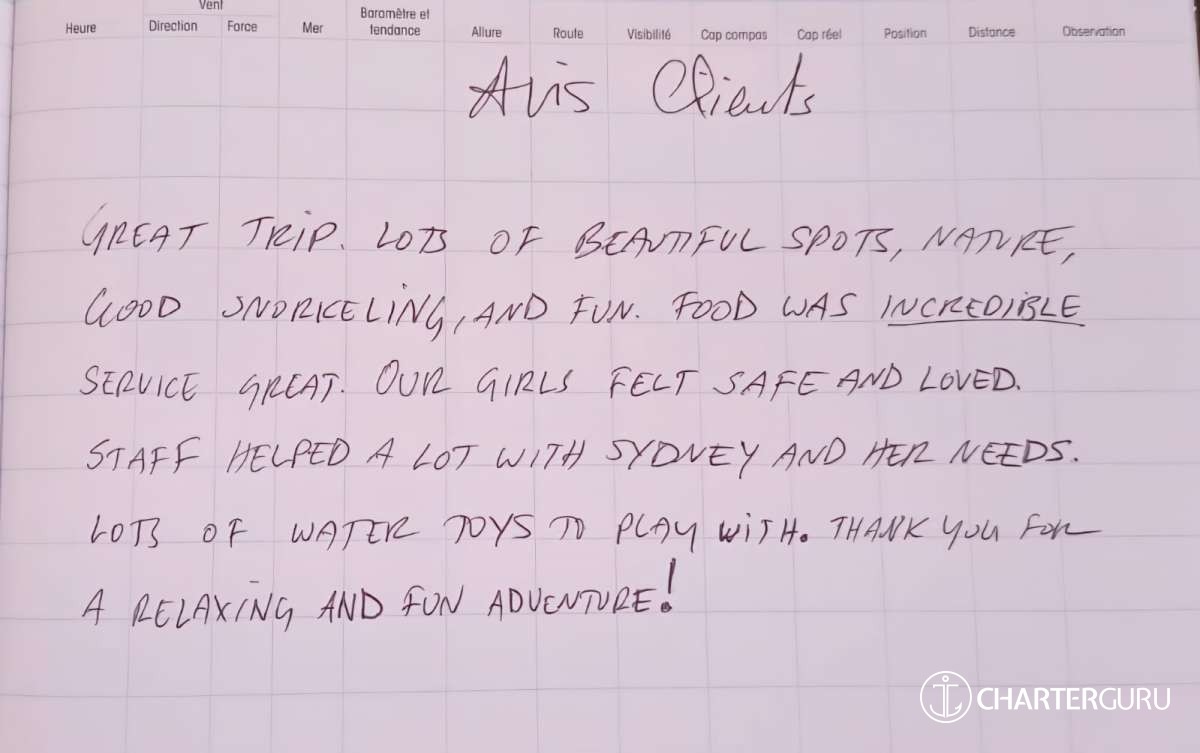 Heure Vent Direction Force Mer Baromètre et tendance Allure Route Visibilité Cap compas Cap réel Position Distance Observation
Avis Clients
GREAT TRIP. LOTS OF BEAUTIFUL SPOTS, NATURE,
GOOD SNORKELING, AND FUN. FOOD WAS INCREDIBLE
SERVICE GREAT. OUR GIRLS FELT SAFE AND LOVED.
STAFF HELPED A LOT WITH SYDNEY AND HER NEEDS.
LOTS OF WATER TOYS TO PLAY WITH. THANK YOU FOR
A RELAXING AND FUN ADVENTURE!
CHARTERGURU